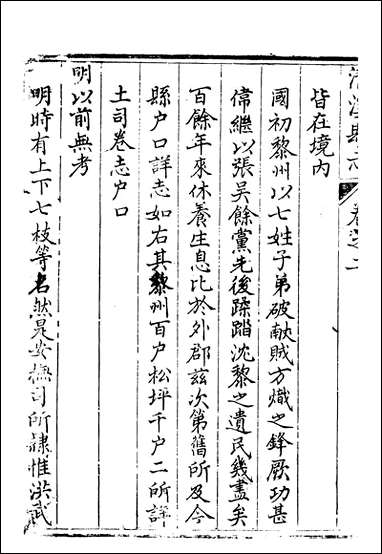 清溪縣志 卷之二
皆在境內
國初黎州以七姓子弟破献賊方熾之鋒厥功甚
偉繼以張吳餘黨先後蹂踏沈黎之遺民幾盡矣
百餘年來休養生息比於外郡兹次第舊所及今
縣户口詳志如右其黎州百户松坪千户二所詳
土司卷志户口
明以前無考
明時有上下七枝等名然是安撫司所隷惟洪武